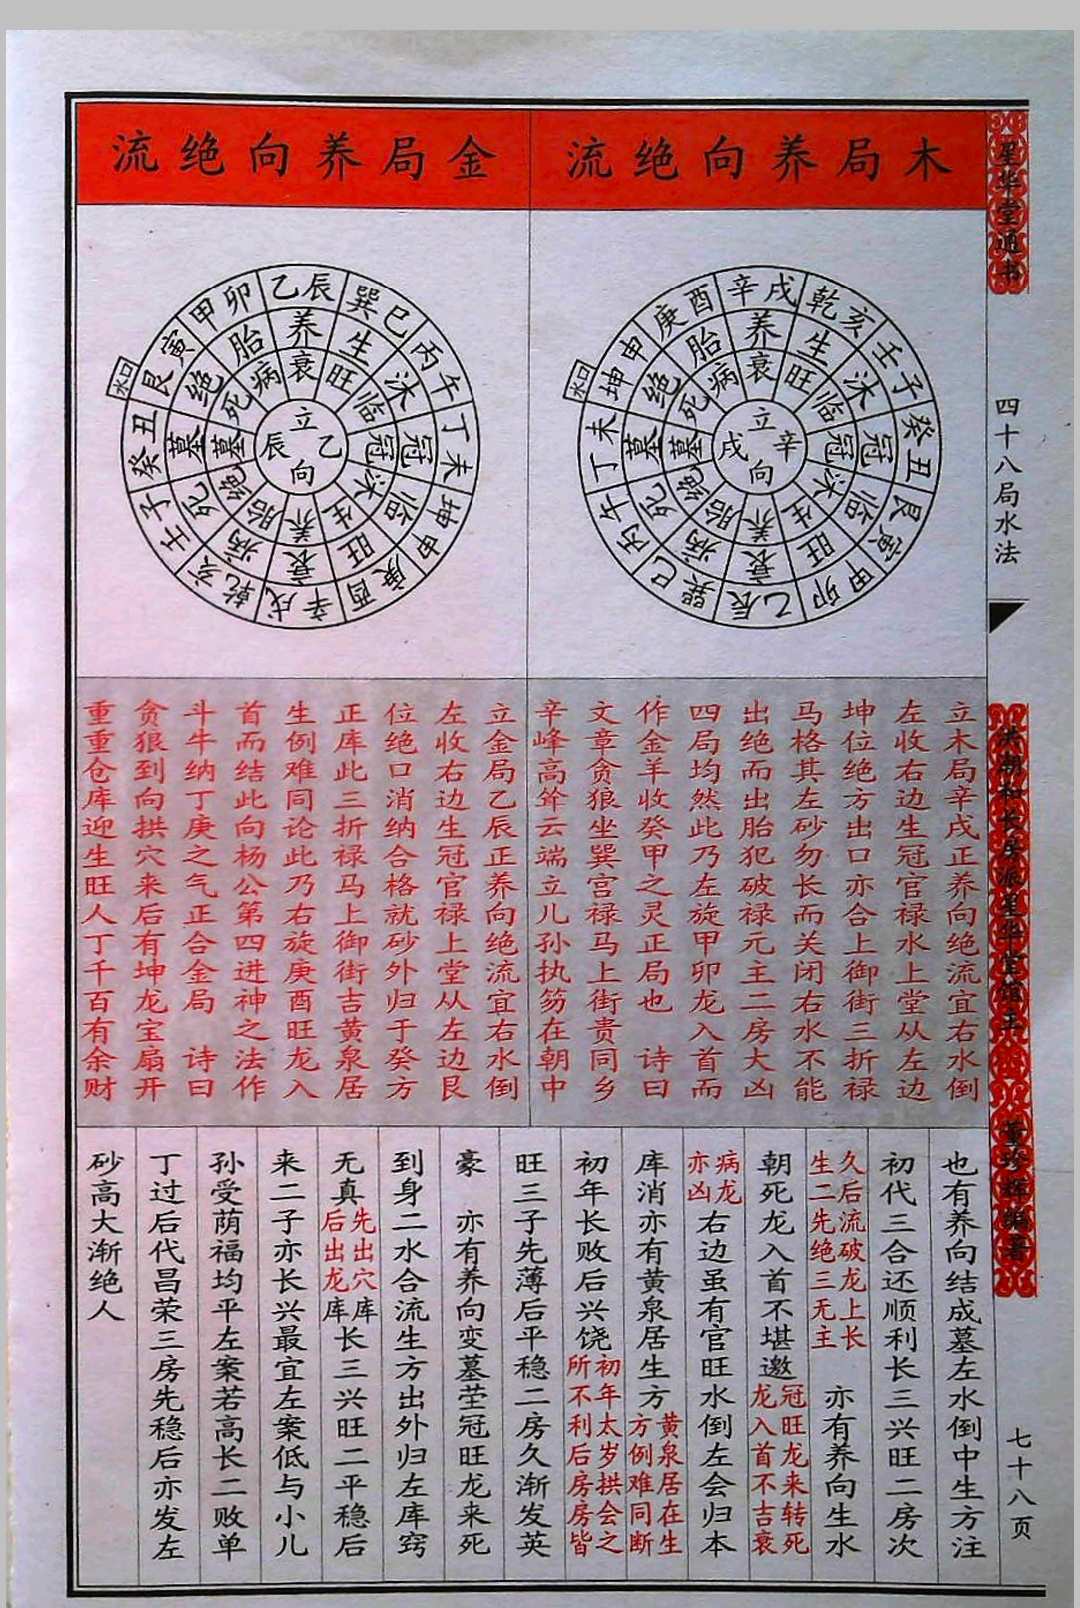 星华堂通书
四十八局水法
七十八页
木局养向绝流
辛戌
乾亥
壬子
癸丑
艮寅
甲卯
乙辰
巽巳
丙午
丁未
坤申
庚酉
养
生
沐
冠
临
旺
衰
病
死
墓
绝
胎
衰
旺
临
冠
沐
生
养
胎
绝
墓
死
病
立
辛
向
戌
水口
立木局辛戌正养向绝流宜右水倒
左收右边生冠官禄水上堂从左边
坤位绝方出口亦合上御街三折禄
马格其左砂勿长而关闭右水不能
出绝而出胎犯破禄元主二房大凶
四局均然此乃左旋甲卯龙入首而
作金羊收癸甲之灵正局也 诗曰
文章贪狼坐巽宫禄马上街贵同乡
辛峰高耸云端立儿孙执笏在朝中
金局养向绝流
乙辰
巽巳
丙午
丁未
坤申
庚酉
辛戌
乾亥
壬子
癸丑
艮寅
甲卯
养
生
沐
冠
临
旺
衰
病
死
墓
绝
胎
衰
旺
临
冠
沐
生
养
胎
绝
墓
死
病
立
乙
向
辰
水口
立金局乙辰正养向绝流宜右水倒
左收右边生冠官禄上堂从左边艮
位绝口消纳合格就砂外归于癸方
正库此三折禄马上御街吉黄泉居
生例难同论此乃右旋庚酉旺龙入
首而结此向杨公第四进神之法作
斗牛纳丁庚之气正合金局 诗曰
贪狼到向拱穴来后有坤龙宝扇开
重重仓库迎生旺人丁千百有余财
也有养向结成墓左水倒中生方注
初代三合还顺利长三兴旺二房次
久后流破龙上长
生二先绝三无主
亦有养向生水
朝死龙入首不堪邀
冠旺龙来转死
龙入首不吉衰
病龙
亦凶
右边虽有官旺水倒左会归本
库消亦有黄泉居生方
黄泉居在生
方例难同断
初年长败后兴饶
初年太岁拱会之
所不利后房房皆
旺三子先薄后平稳二房久渐发英
豪 亦有养向变墓茔冠旺龙来死
到身二水合流生方出外归左库窍
无真
先出穴库
后出龙库
长三兴旺二平稳后
来二子亦长兴最宜左案低与小儿
孙受荫福均平左案若高长二败单
丁过后代昌荣三房先稳后亦发左
砂高大渐绝人